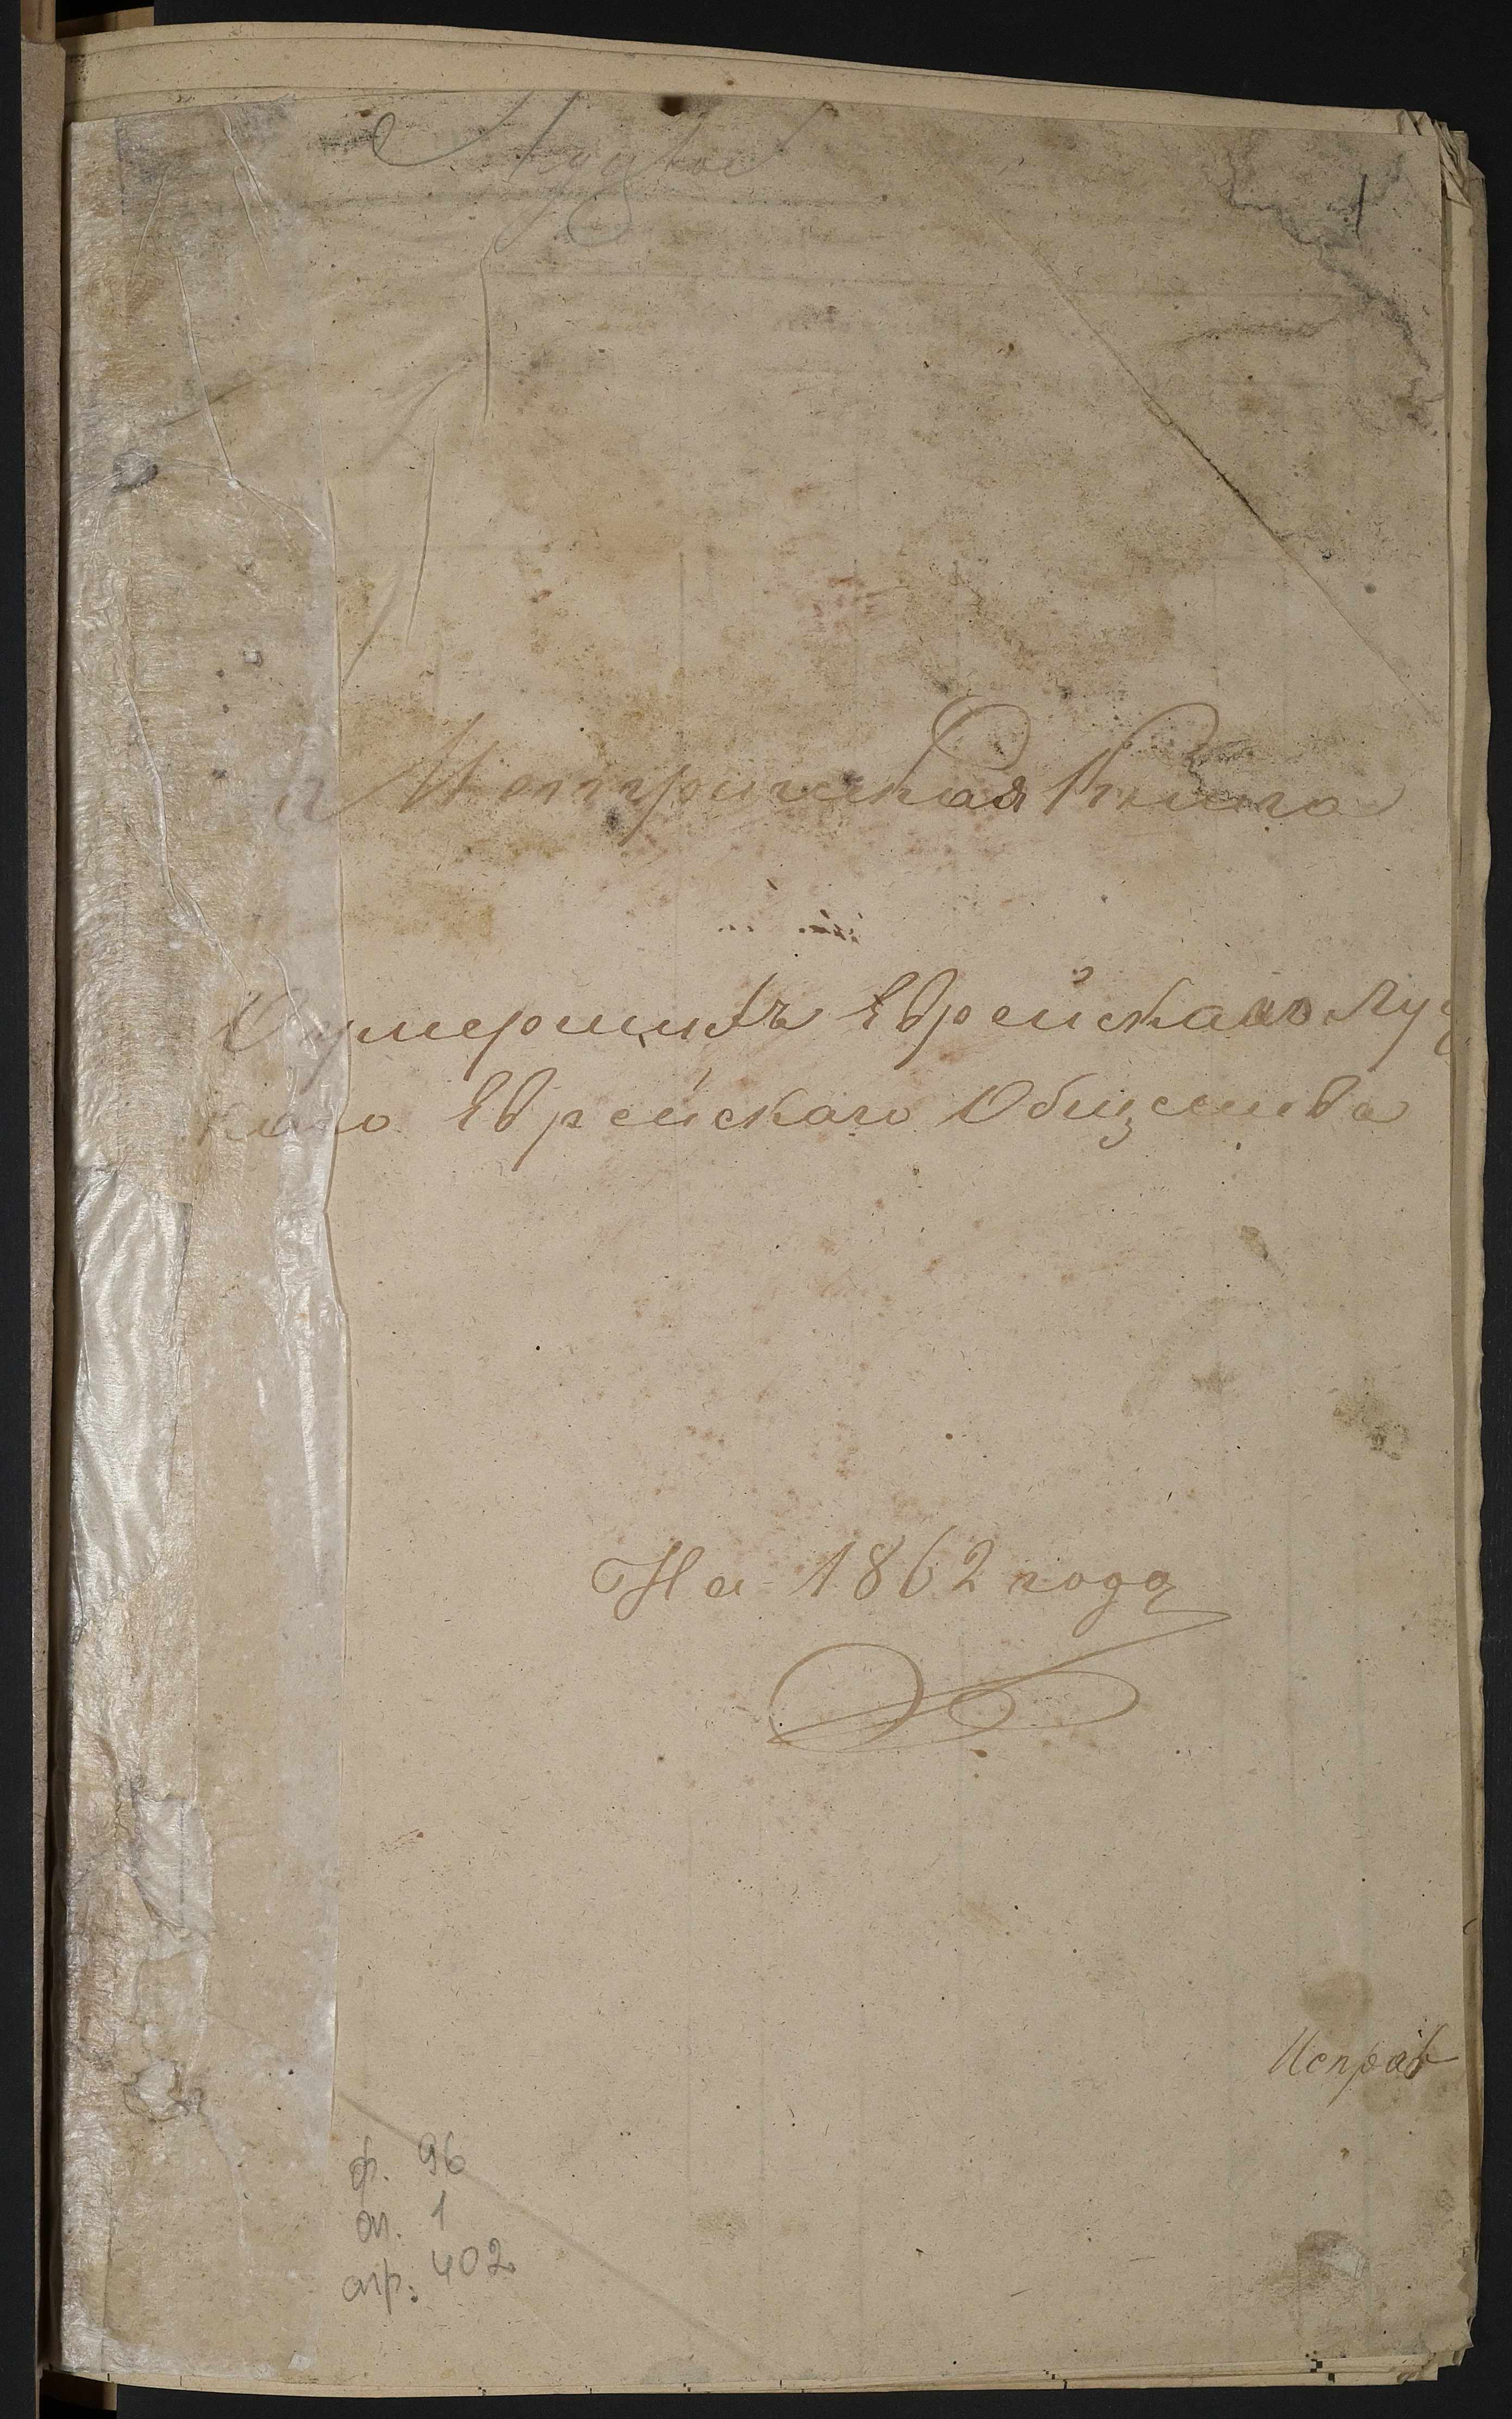 1
Метрическая Книга
О умершихъ Еврейскаго Луц
каго Еврейскаго Общества
На 1862 года
Исправ
ф. 96
оп. 1
спр. 402